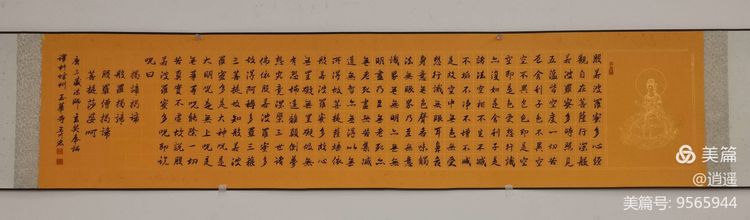 般若波羅蜜多心經
觀自在菩薩行深般
若波羅蜜多時照見
五蘊皆空度一切苦
厄舍利子色不異空
空不異色色即是空
空即是色受想行識
亦復如是舍利子是
諸法空相不生不滅
不垢不淨不增不減
是故空中無色無受
想行識無眼耳鼻舌
身意無色聲香味觸
法無眼界乃至無意
識界無無明亦無無
明盡乃至無老死亦
無老死盡無苦集滅
道無智亦無得以無
所得故菩提薩埵依
般若波羅蜜多故心
無罣礙無罣礙故無
有恐怖遠離顛倒夢
想究竟涅槃三世諸
佛依般若波羅蜜多
故得阿耨多羅三藐
三菩提故知般若波
羅蜜多是大神咒是
大明咒是無上咒是
無等等咒能除一切
苦真實不虛故說般
若波羅蜜多咒即說
咒曰
揭諦揭諦
般羅揭諦
般羅僧揭諦
菩提莎婆呵
唐三藏法師玄奘奉詔
譯於
美篇
@逍遥
美篇号: 9565944